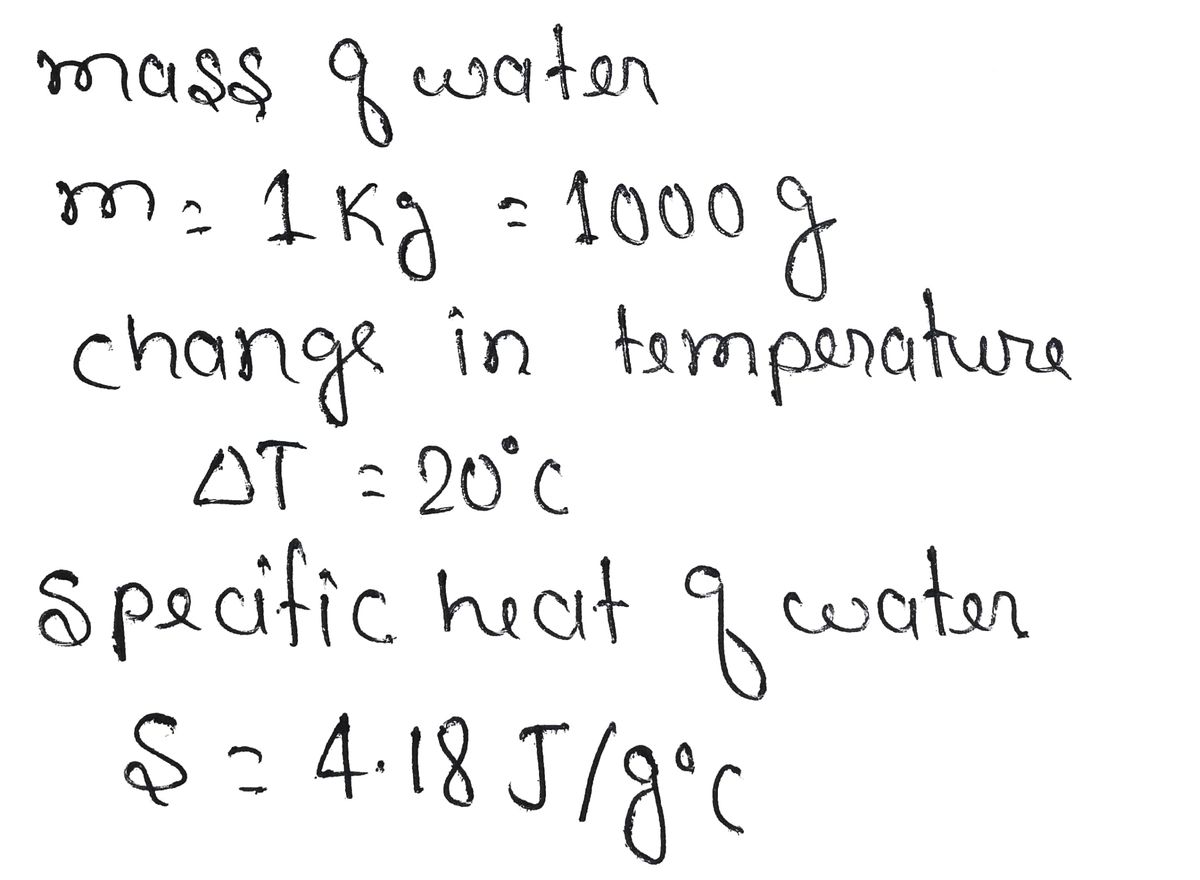 mass of water
m = 1 Kg = 1000 g
change in temperature
ΔT = 20°C
Specific heat of water
S = 4.18 J/g°C